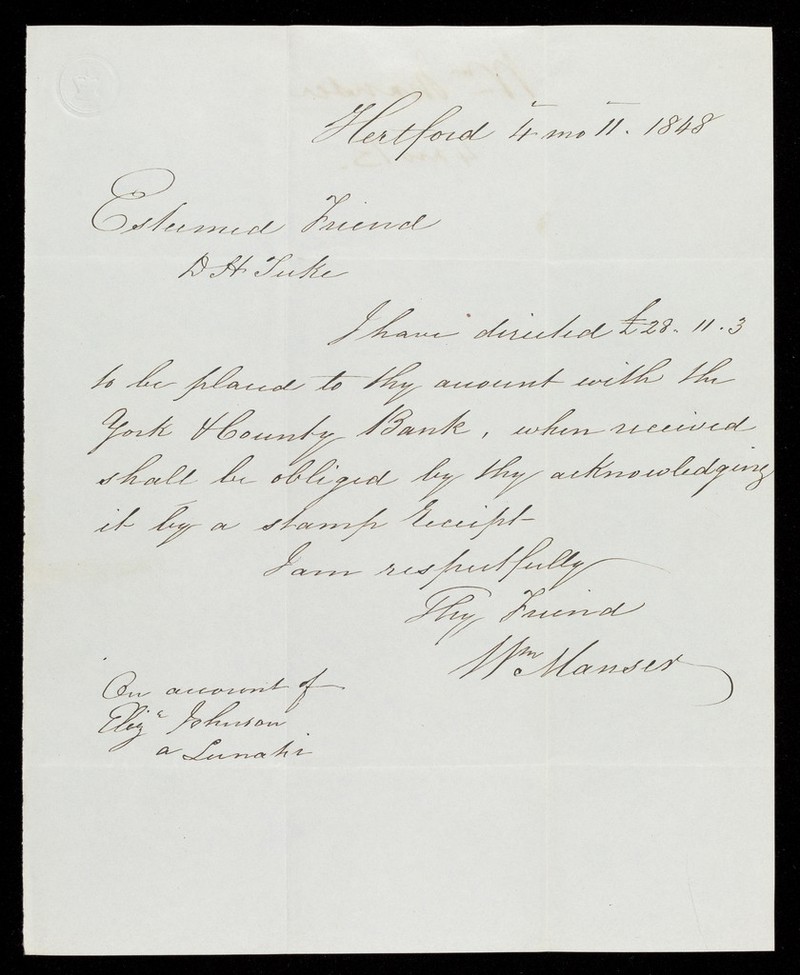 Hertford 4 mo 11. 1848
Esteemed Friend
D H Tuke
I have directed £28. 11. 3
to be placed to thy account with the
York & County Bank, when received
shall be obliged by thy acknowledging
it by a stamp receipt
I am respectfully
Thy Friend
Wm Manser
On account of
Eliz.a Johnson
a Lunatic